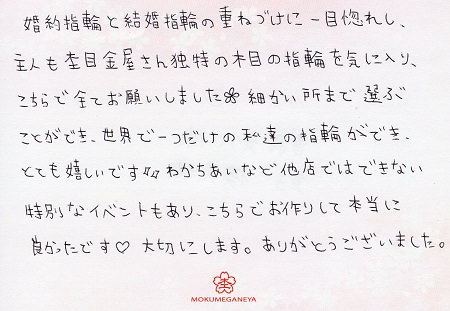 婚約指輪と結婚指輪の重ねづけに一目惚れし、
主人も杢目金屋さん独特の木目の指輪を気に入り、
こちらで全てお願いしました❀ 細かい所まで選ぶ
ことができ、世界で一つだけの私達の指輪ができ、
とても嬉しいです♪♪ わかちあいなど他店ではできない
特別なイベントもあり、こちらでお作りして本当に
良かったです♡ 大切にします。ありがとうございました。
MOKUMEGANEYA